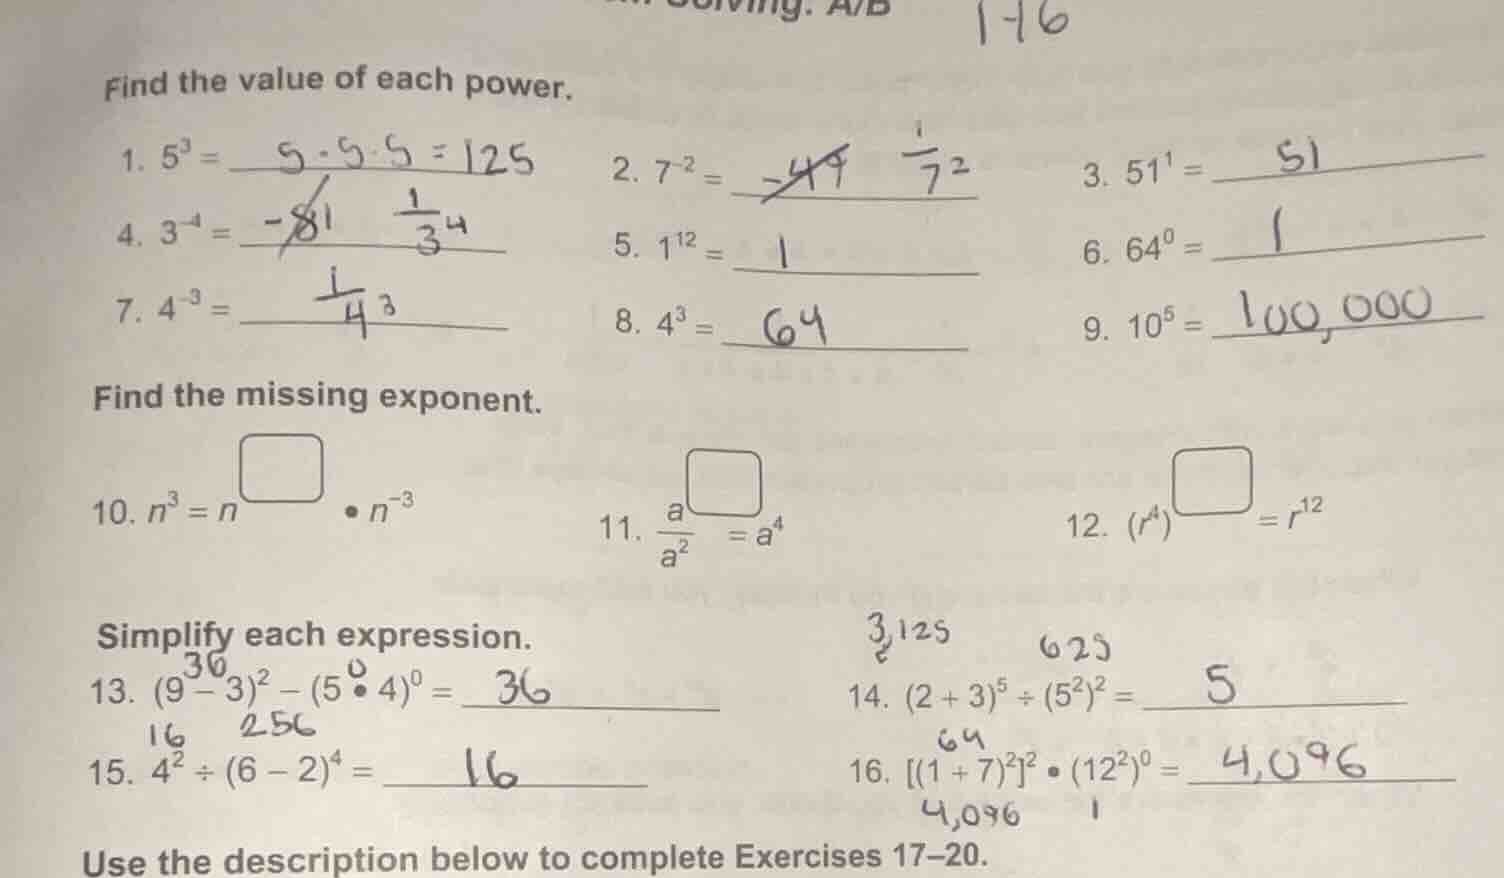 Solving: A/B 1-16
Find the value of each power.
1. 5³ = 5 · 5 · 5 = 125 2. 7⁻² = -49 1/7² 3. 51¹ = 51
4. 3⁻⁴ = -81 1/3⁴ 5. 1¹² = 1 6. 64⁰ = 1
7. 4⁻³ = 1/4³ 8. 4³ = 64 9. 10⁵ = 100,000
Find the missing exponent.
10. n³ = n□ • n⁻³ 11. a□/a² = a⁴ 12. (r⁴)□ = r¹²
Simplify each expression.
36 0 3,125 625
13. (9 – 3)² – (5 • 4)⁰ = 36 14. (2 + 3)⁵ ÷ (5²)² = 5
16 256 64
15. 4² ÷ (6 – 2)⁴ = 16 16. [(1 + 7)²]² • (12²)⁰ = 4,096
4,096 1
Use the description below to complete Exercises 17–20.